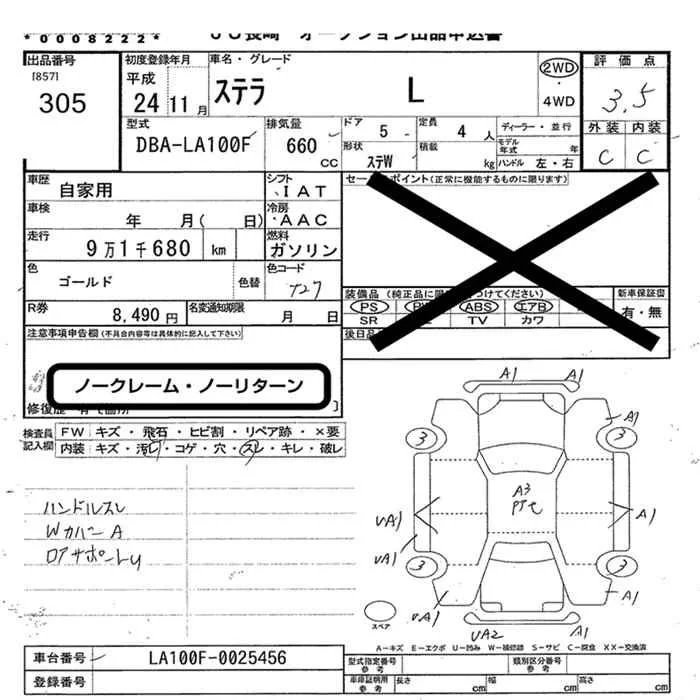 *0008222* JU長崎 オークション出品申込書
出品番号
[857]
305
初度登録年月
平成
24 11月
車名・グレード
ステラ L
2WD
・
4WD
評価点
3.5
外装 内装
C C
型式
DBA-LA100F
排気量
660
CC
ドア 5
定員 4 人
形状 ステW
積載 kg
ディーラー・並行
モデル年式 年
ハンドル 左・右
車歴
自家用
シフト
IAT
車検
年 月( 日)
冷房
AAC
走行
9万1千680 km
燃料
ガソリン
色
ゴールド
色替
色コード
T27
R券
8,490円
名変通知期限
月 日
セー ポイント(正常に機能するものに限ります)
装備品(純正品に限 つけてください)
PS ABS エアB
SR TV カワ
新車保証書
有・無
後日品
注意事項申告欄(不具合内容等は具体的に記入して下さい)
ノークレーム・ノーリターン
修復歴
検査員
記入欄
FW キズ・飛石・ヒビ割・リペア跡・×要
内装 キズ・汚レ・コゲ・穴・スレ・キレ・破レ
ハンドルスレ
WカバーA
ロアサポートU
A1 A1
A1
3 3
A3
PTセ
UA1 A1
UA1
3 3
UA1 A1
UA2 A1
スペア
A-キズ E-エクボ U-凹み W-補修跡 S-サビ C-腐食 XX-交換済
車台番号 LA100F-0025456
登録番号
型式指定番号
参考
類別区分番号
参考
車庫証明用
参考
長さ cm 幅 cm 高さ cm